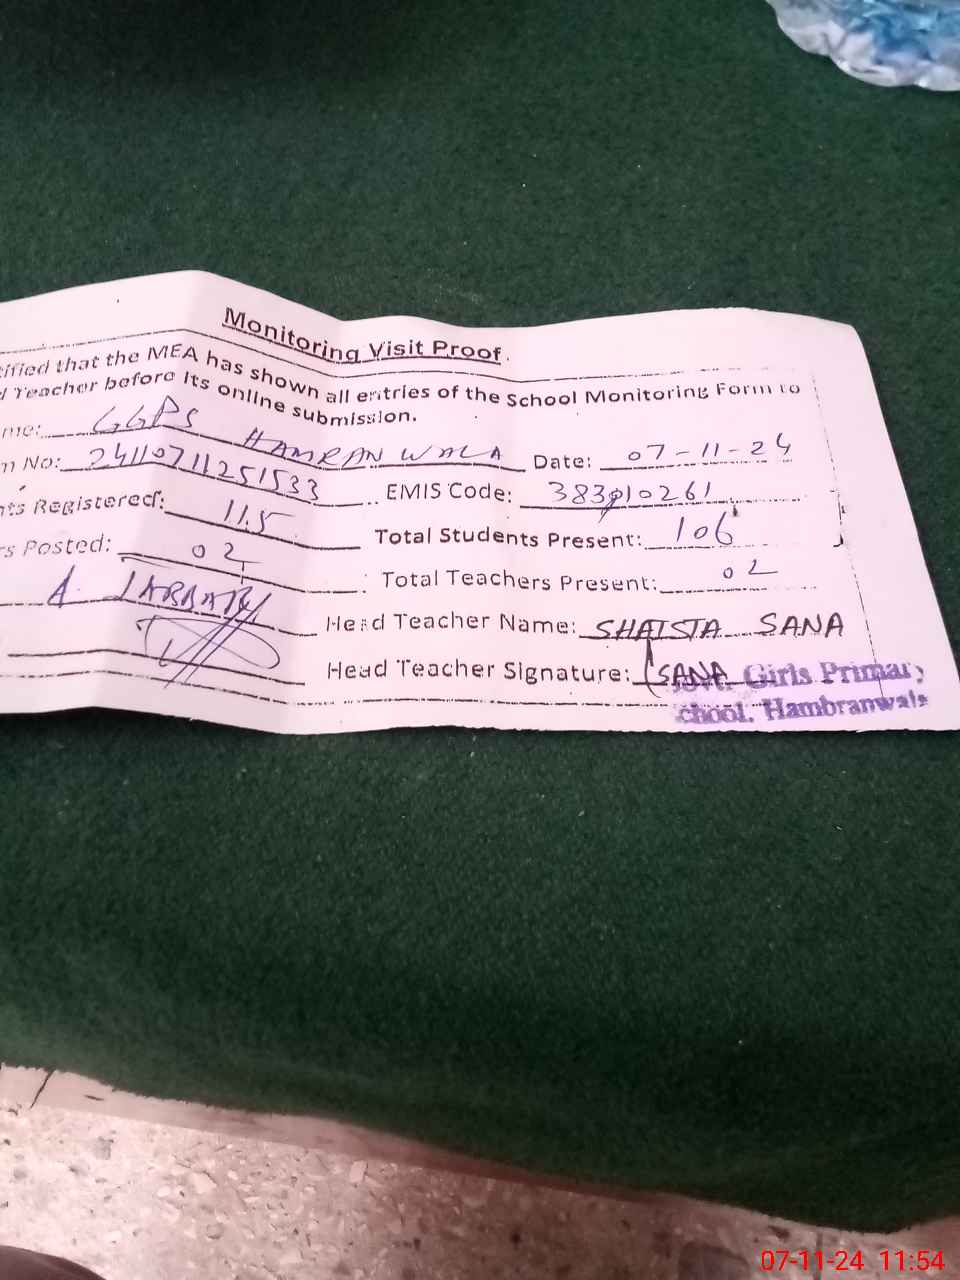 Monitoring Visit Proof.
tified that the MEA has shown all entries of the School Monitoring Form to
d Teacher before its online submission.
me: GGPS HAMRAN WALA Date: 07-11-24
m No: 24110711251533 EMIS Code: 383910261
nts Registered: 115 Total Students Present: 106
rs Posted: 02 Total Teachers Present: 02
A. JABBAR Head Teacher Name: SHAISTA SANA
Head Teacher Signature: SANA
Govt. Girls Primary
School. Hambranwala
07-11-24 11:54